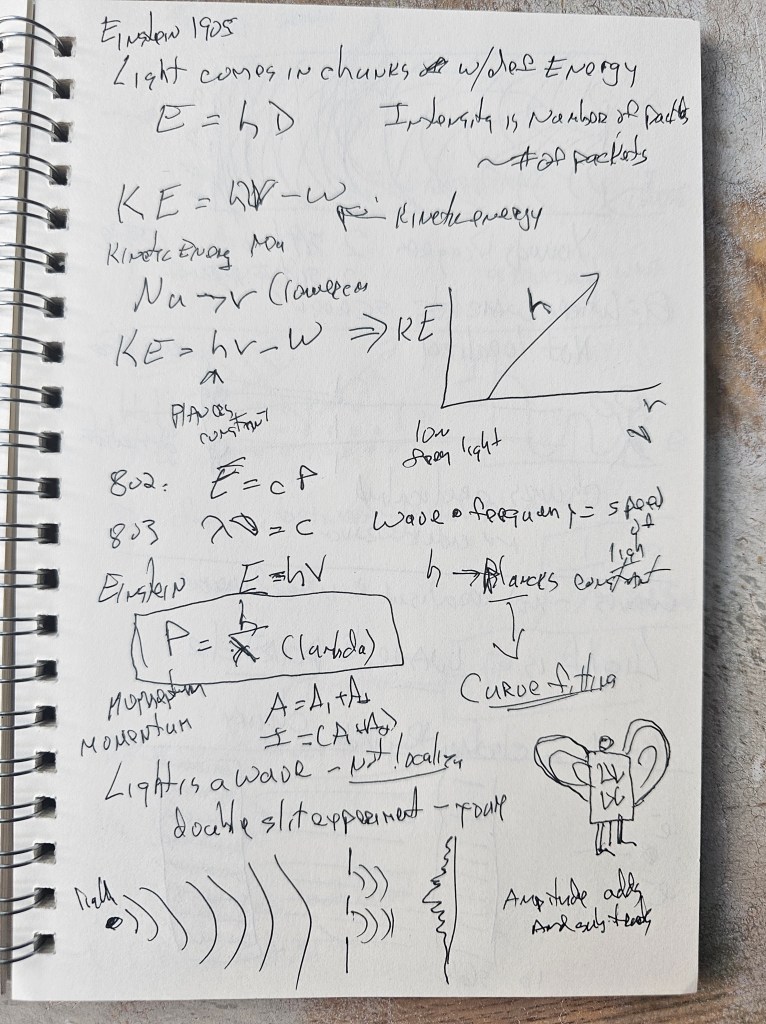 Einstein 1905
Light comes in chunks w/def Energy
E = hν
Intensity is Number of packets
~ # of packets
KE = hν - W
Kinetic energy
Kinetic Energy
Nu → ν (lowercase
KE = hν - W ⇒
KE
h
Plancks constant
low
freq light
ν
802: E = cP
803 λν = c
wave • frequency = speed of light
Einstein E = hν
h → Plancks constant
P = h/λ (lambda)
Curve fitting
Momentum
MOMENTUM
A = A₁ + A₂
Light is a wave - Not localize
double slit experiment - Young
Amplitude adds
And subtracts